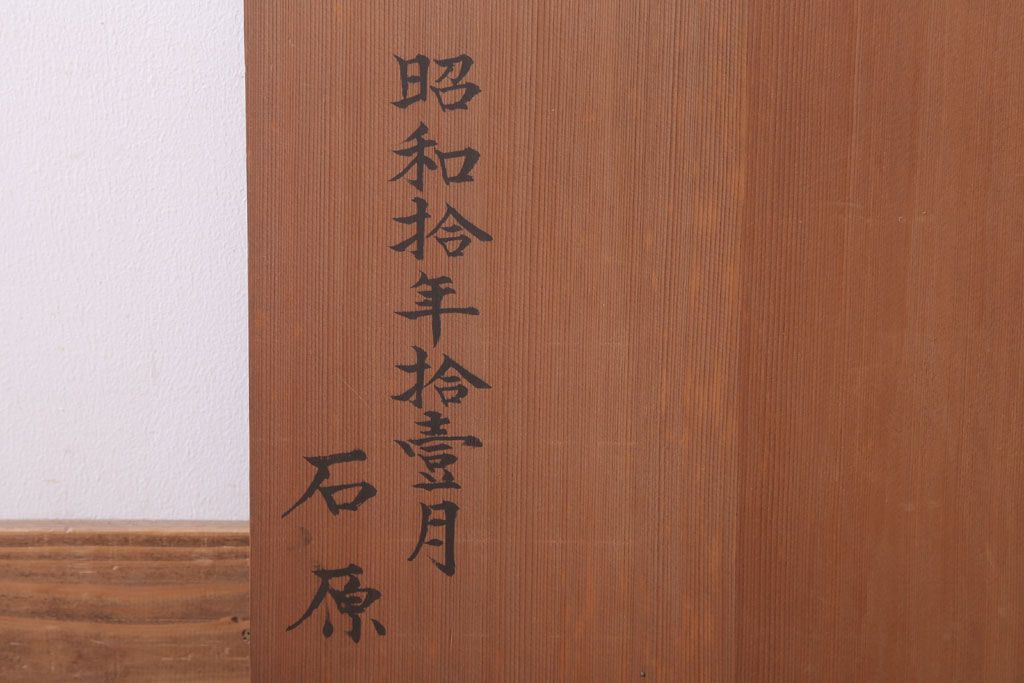 昭和拾年拾壹月
石原